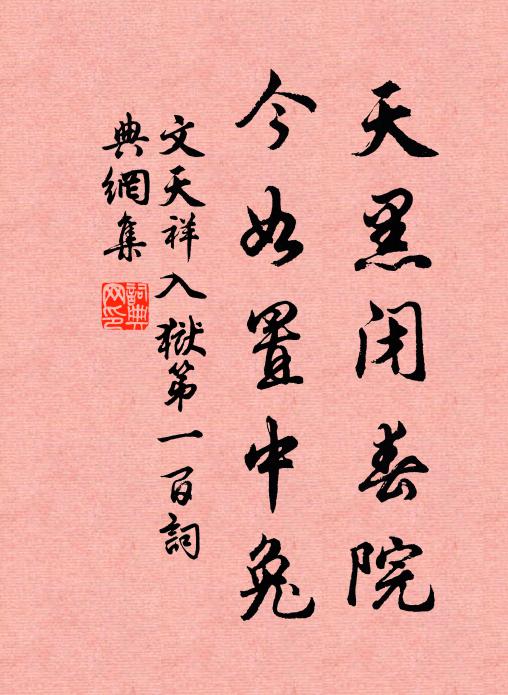 天黑闭春院
今如置中兔
文天祥入獄第一百詞
典網集
詞典
网印